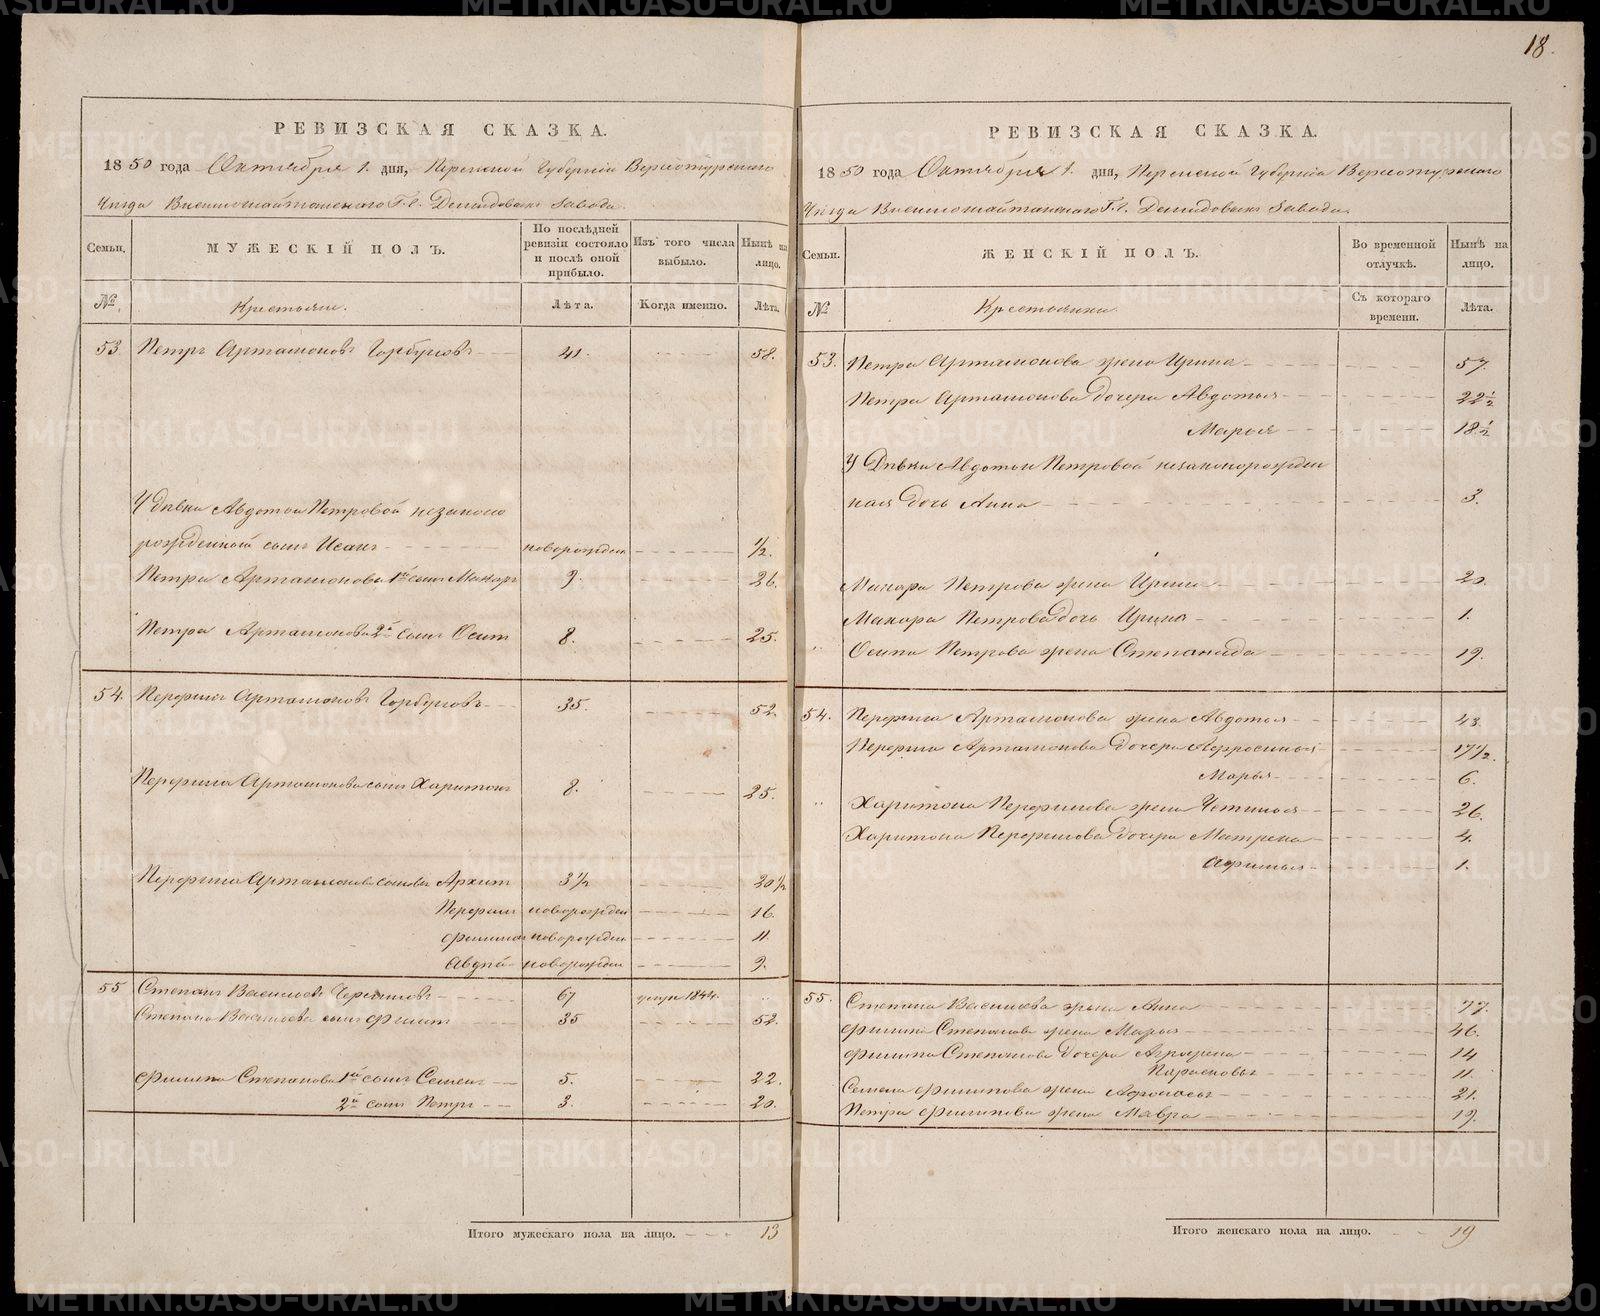 18.
РЕВИЗСКАЯ СКАЗКА.
1850 года Октября 1. дня, Пермской Губерніи Верхотурскаго
Уѣзда Висимошайтанскаго Г.г. Демидовыхъ Завода.
Семьи.
МУЖЕСКІЙ ПОЛЪ.
По послѣдней ревизіи состояло и послѣ оной прибыло.
Изъ того числа выбыло.
Нынѣ на лицо.
№
Крестьяне.
Лѣта.
Когда именно.
Лѣта.
53 Петръ Артамоновъ Горбуновъ 41. 58.
У Дѣвки Авдотьи Петровой незаконо
рожденной сынъ Исакъ новорожден ½.
Петра Артамонова 1й сынъ Макаръ 9. 26.
Петра Артамонова 2й сынъ Осипъ 8. 25.
54. Перфилъ Артамоновъ Горбуновъ 35. 52.
Перфила Артамонова сынъ Харитонъ 8. 25.
Перфила Артамонова сыновья Архипъ 3½ 20½
Перфилъ новорожден 16.
Филипъ новорожден 11.
Авдѣй новорожден 9.
55 Степанъ Васильевъ 67 умре 1844.
Степана Васильева сынъ Филипъ 35 52.
Филипа Степанова 1й сынъ Семенъ 5. 22.
2й сынъ Петръ 3. 20.
Итого мужескаго пола на лицо. 13
РЕВИЗСКАЯ СКАЗКА.
1850 года Октября 1. дня, Пермской Губерніи Верхотурскаго
Уѣзда Висимошайтанскаго Г.г. Демидовыхъ Завода.
Семьи.
ЖЕНСКІЙ ПОЛЪ.
Во временной отлучкѣ.
Нынѣ на лицо.
№
Крестьянки.
Съ котораго времени.
Лѣта.
53. Петра Артамонова жена Ирина 57.
Петра Артамонова дочери Авдотья 22½
Марья 18½
У Дѣвки Авдотьи Петровой незаконорожден
ная дочь Анна 3.
Макара Петрова жена Ирина 20.
Макара Петрова дочь Ирина 1.
Осипа Петрова жена Степанида 19.
54. Перфила Артамонова жена Авдотья 43.
Перфила Артамонова дочери Афросинья 17½.
Марья 6.
Харитона Перфилова жена Устинья 26.
Харитона Перфилова дочери Матрена 4.
Афимья 1.
55. Степана Васильева жена Анна 77.
Филипа Степанова жена Марья 46.
Филипа Степанова дочери Аграфена 14
Парасковья 11.
Семена Филипова жена 21.
Петра Филипова жена Мавра 19.
Итого женскаго пола на лицо. 19
METRIKI.GASO-URAL.RU